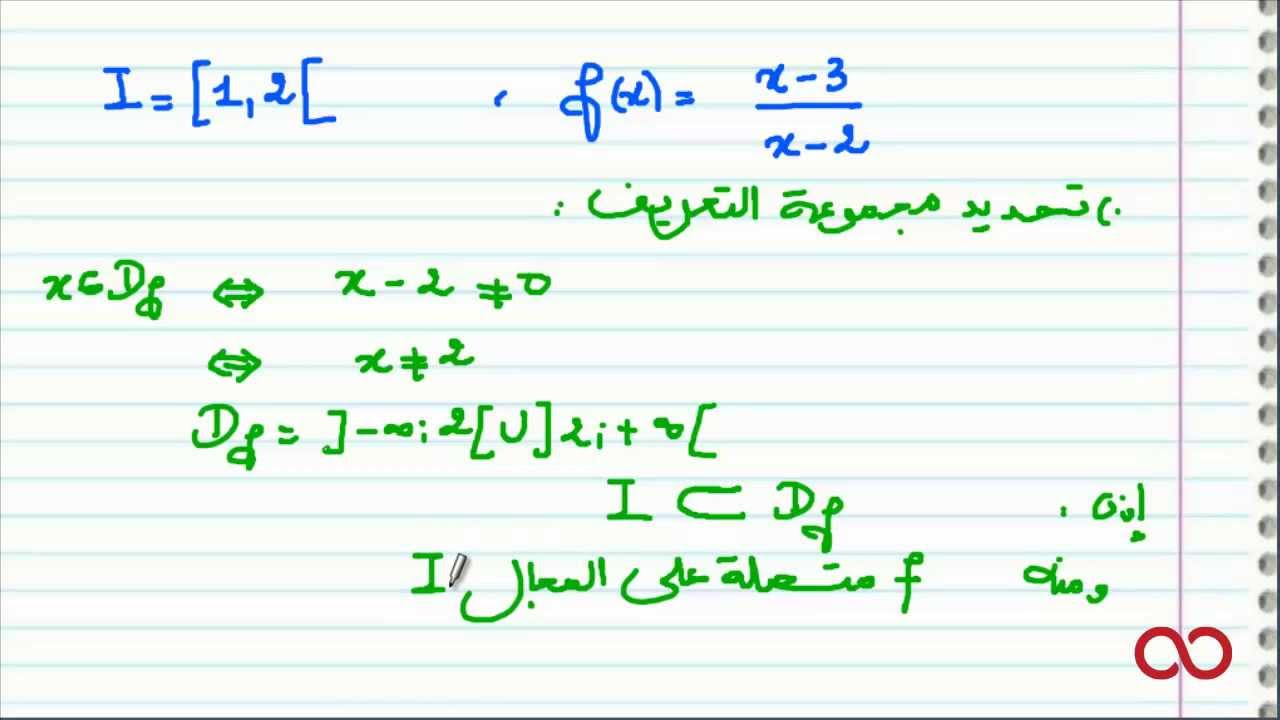 I = [1, 2[ ، f(x) = (x - 3)/(x - 2)
(، تحديد مجموعة التعريف :
x ∈ Df ⇔ x - 2 ≠ 0
⇔ x ≠ 2
Df = ]-∞; 2[ ∪ ]2; +∞[
إذن : I ⊂ Df
ومنه f متصلة على المجال I